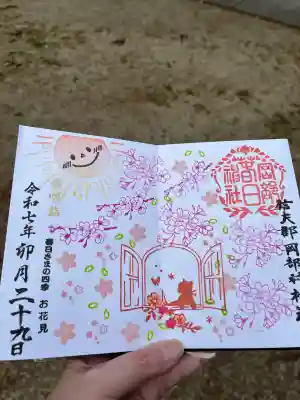 信夫郡 岡部村
岡部
春日
神社
春日さまの四季 お花見
令和七年卯月二十九日